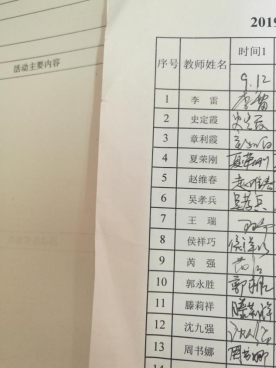 活动主要内容
2019
序号 教师姓名 时间1
9.12
1 李雷 李雷
2 史定霞 史定霞
3 章利霞
4 夏荣刚 夏荣刚
5 赵维春 赵维春
6 吴孝兵 吴孝兵
7 王瑞 王瑞
8 侯祥巧 侯祥巧
9 芮强 芮强
10 郭永胜 郭永胜
11 滕莉祥 滕莉祥
12 沈九强
13 周书娜 周书娜
14